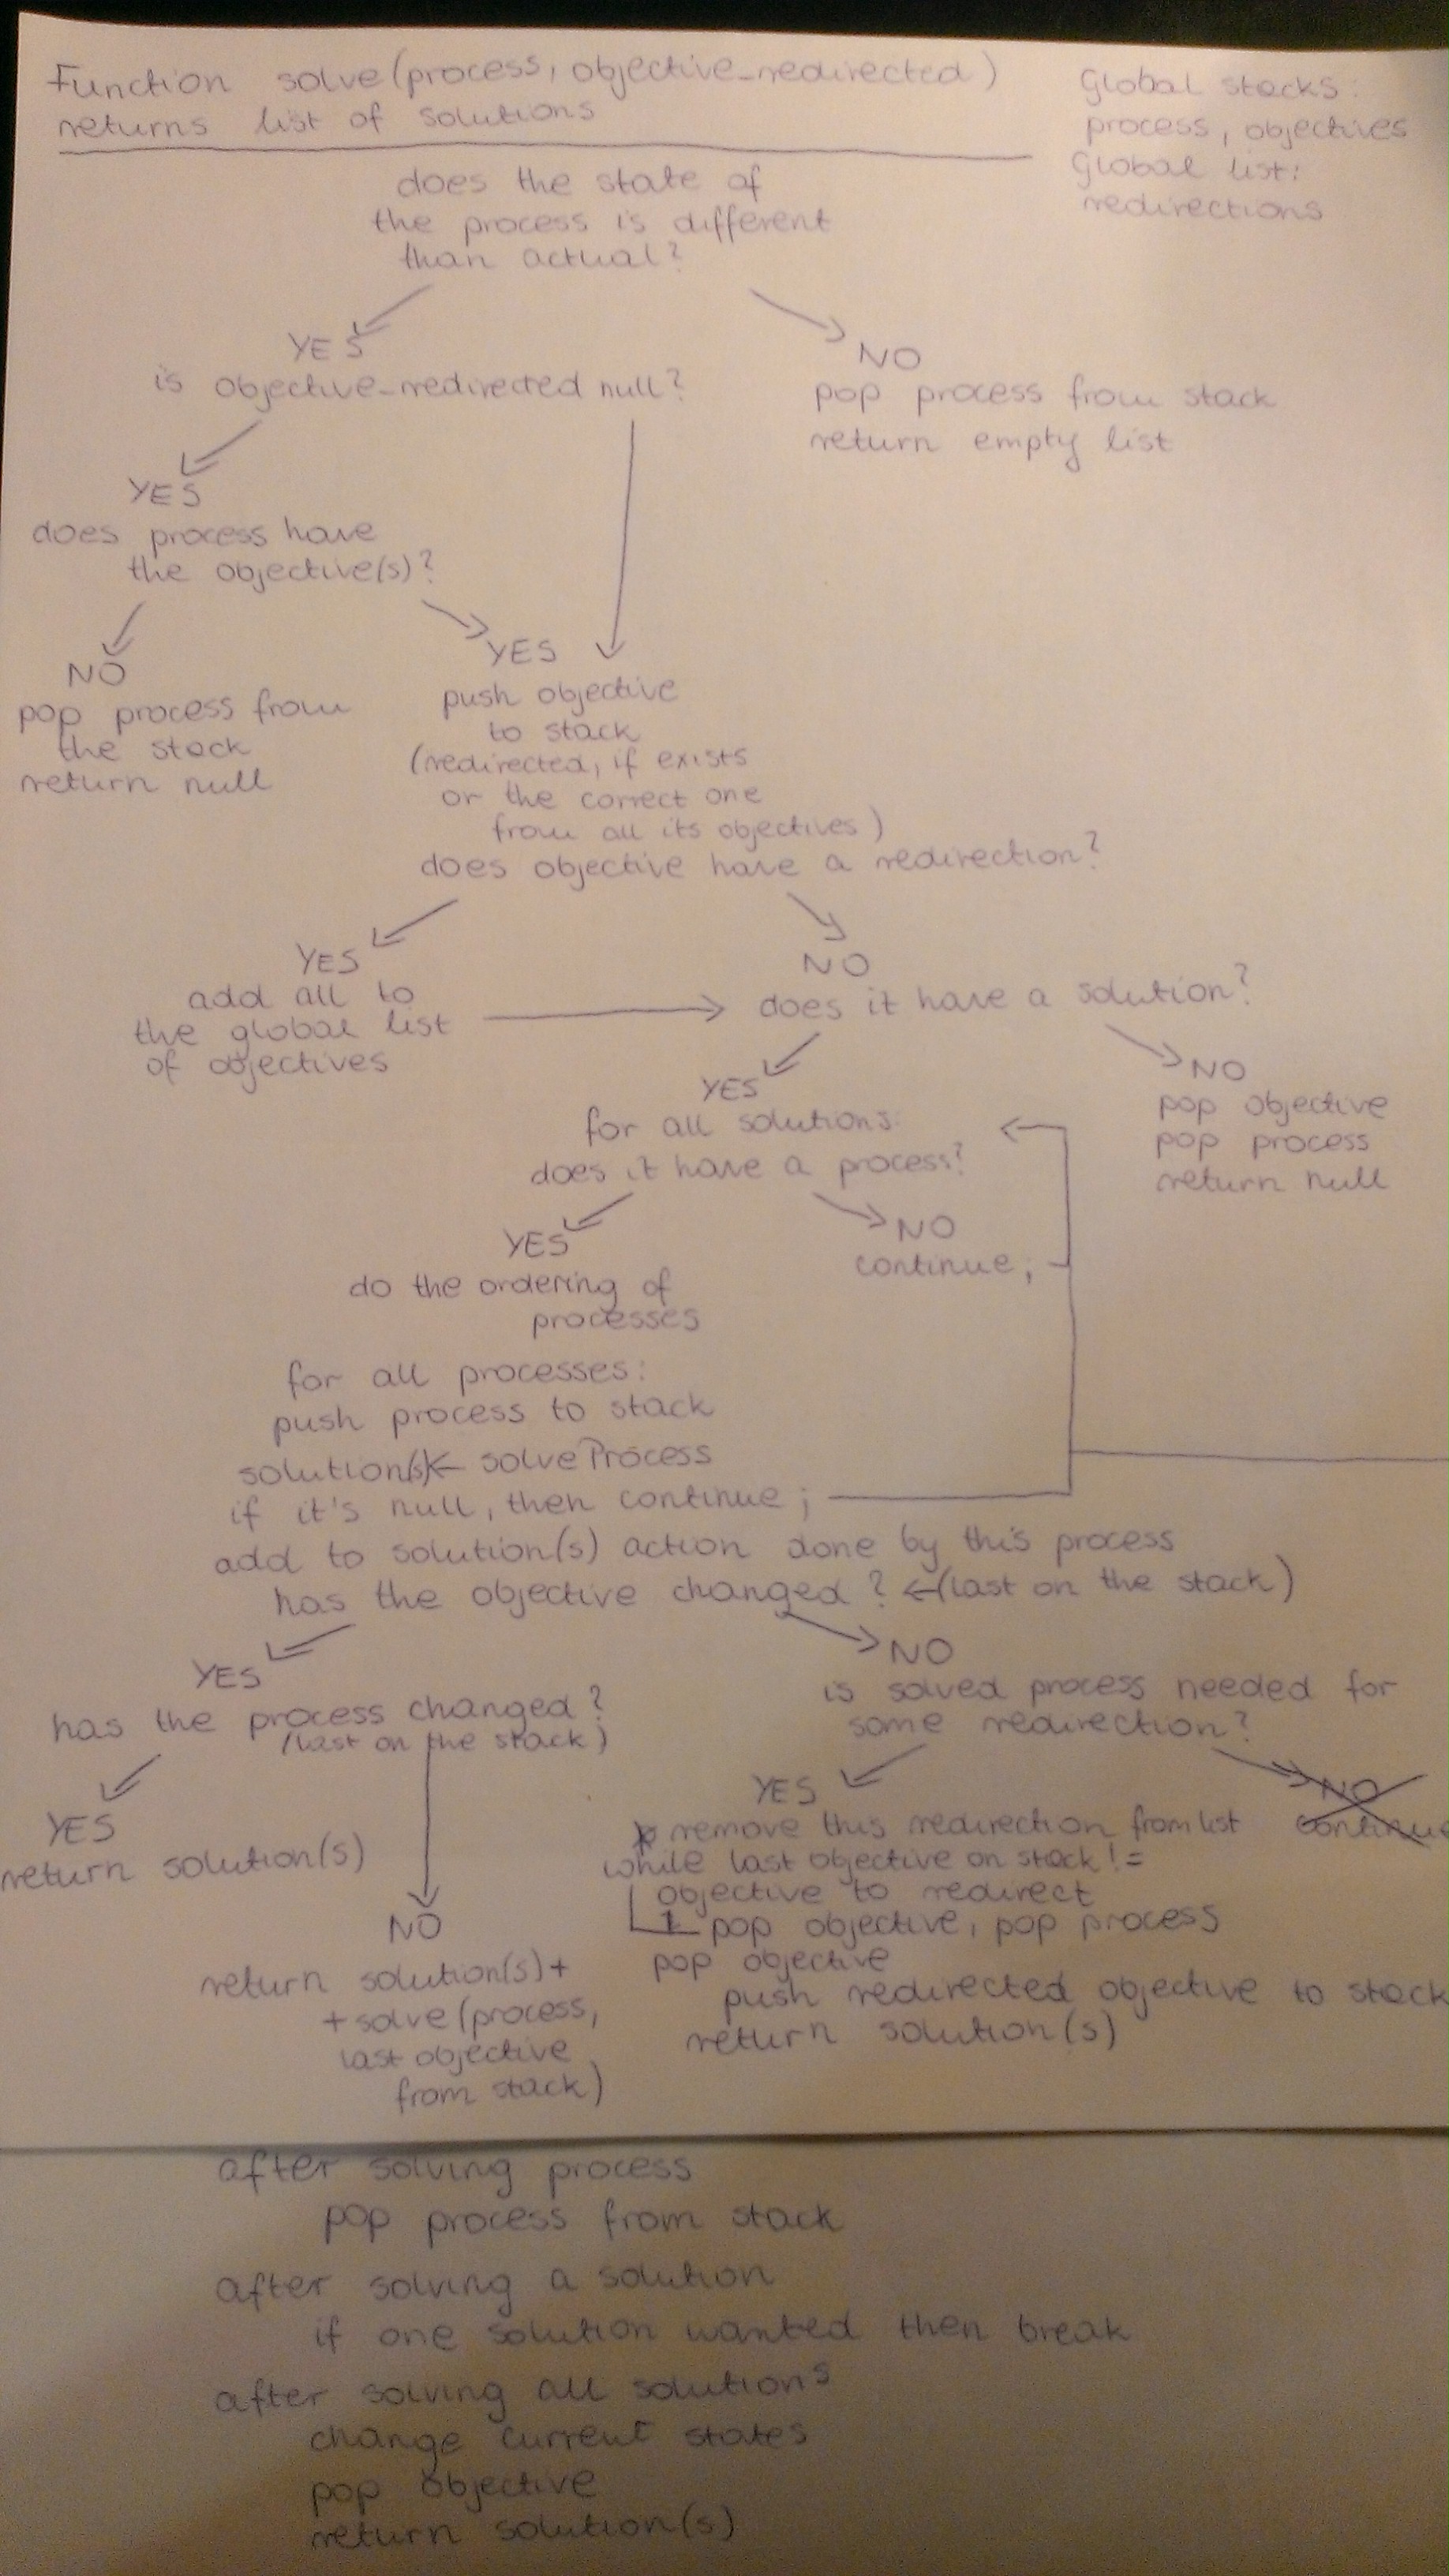 Function solve(process, objective_redirected)
returns list of solutions
Global stacks:
process, objectives
Global list:
redirections
does the state of
the process is different
than actual?
YES
is objective_redirected null?
NO
pop process from stack
return empty list
YES
does process have
the objective(s)?
NO
pop process from
the stack
return null
YES
push objective
to stack
(redirected, if exists
or the correct one
from all its objectives)
does objective have a redirection?
YES
add all to
the global list
of objectives
NO
does it have a solution?
YES
for all solutions:
does it have a process?
NO
pop objective
pop process
return null
YES
do the ordering of
processes
NO
continue;
for all processes:
push process to stack
solution(s) ← solveProcess
if it's null, then continue;
add to solution(s) action done by this process
has the objective changed? ←(last on the stack)
YES
has the process changed?
(last on the stack)
NO
is solved process needed for
some redirection?
YES
return solution(s)
NO
return solution(s)+
+solve(process,
last objective
from stack)
YES
remove this redirection from list
while last objective on stack !=
objective to redirect
pop objective, pop process
pop objective
push redirected objective to stack
return solution(s)
NO
continue
after solving process
pop process from stack
after solving a solution
if one solution wanted then break
after solving all solutions
change current states
pop objective
return solution(s)